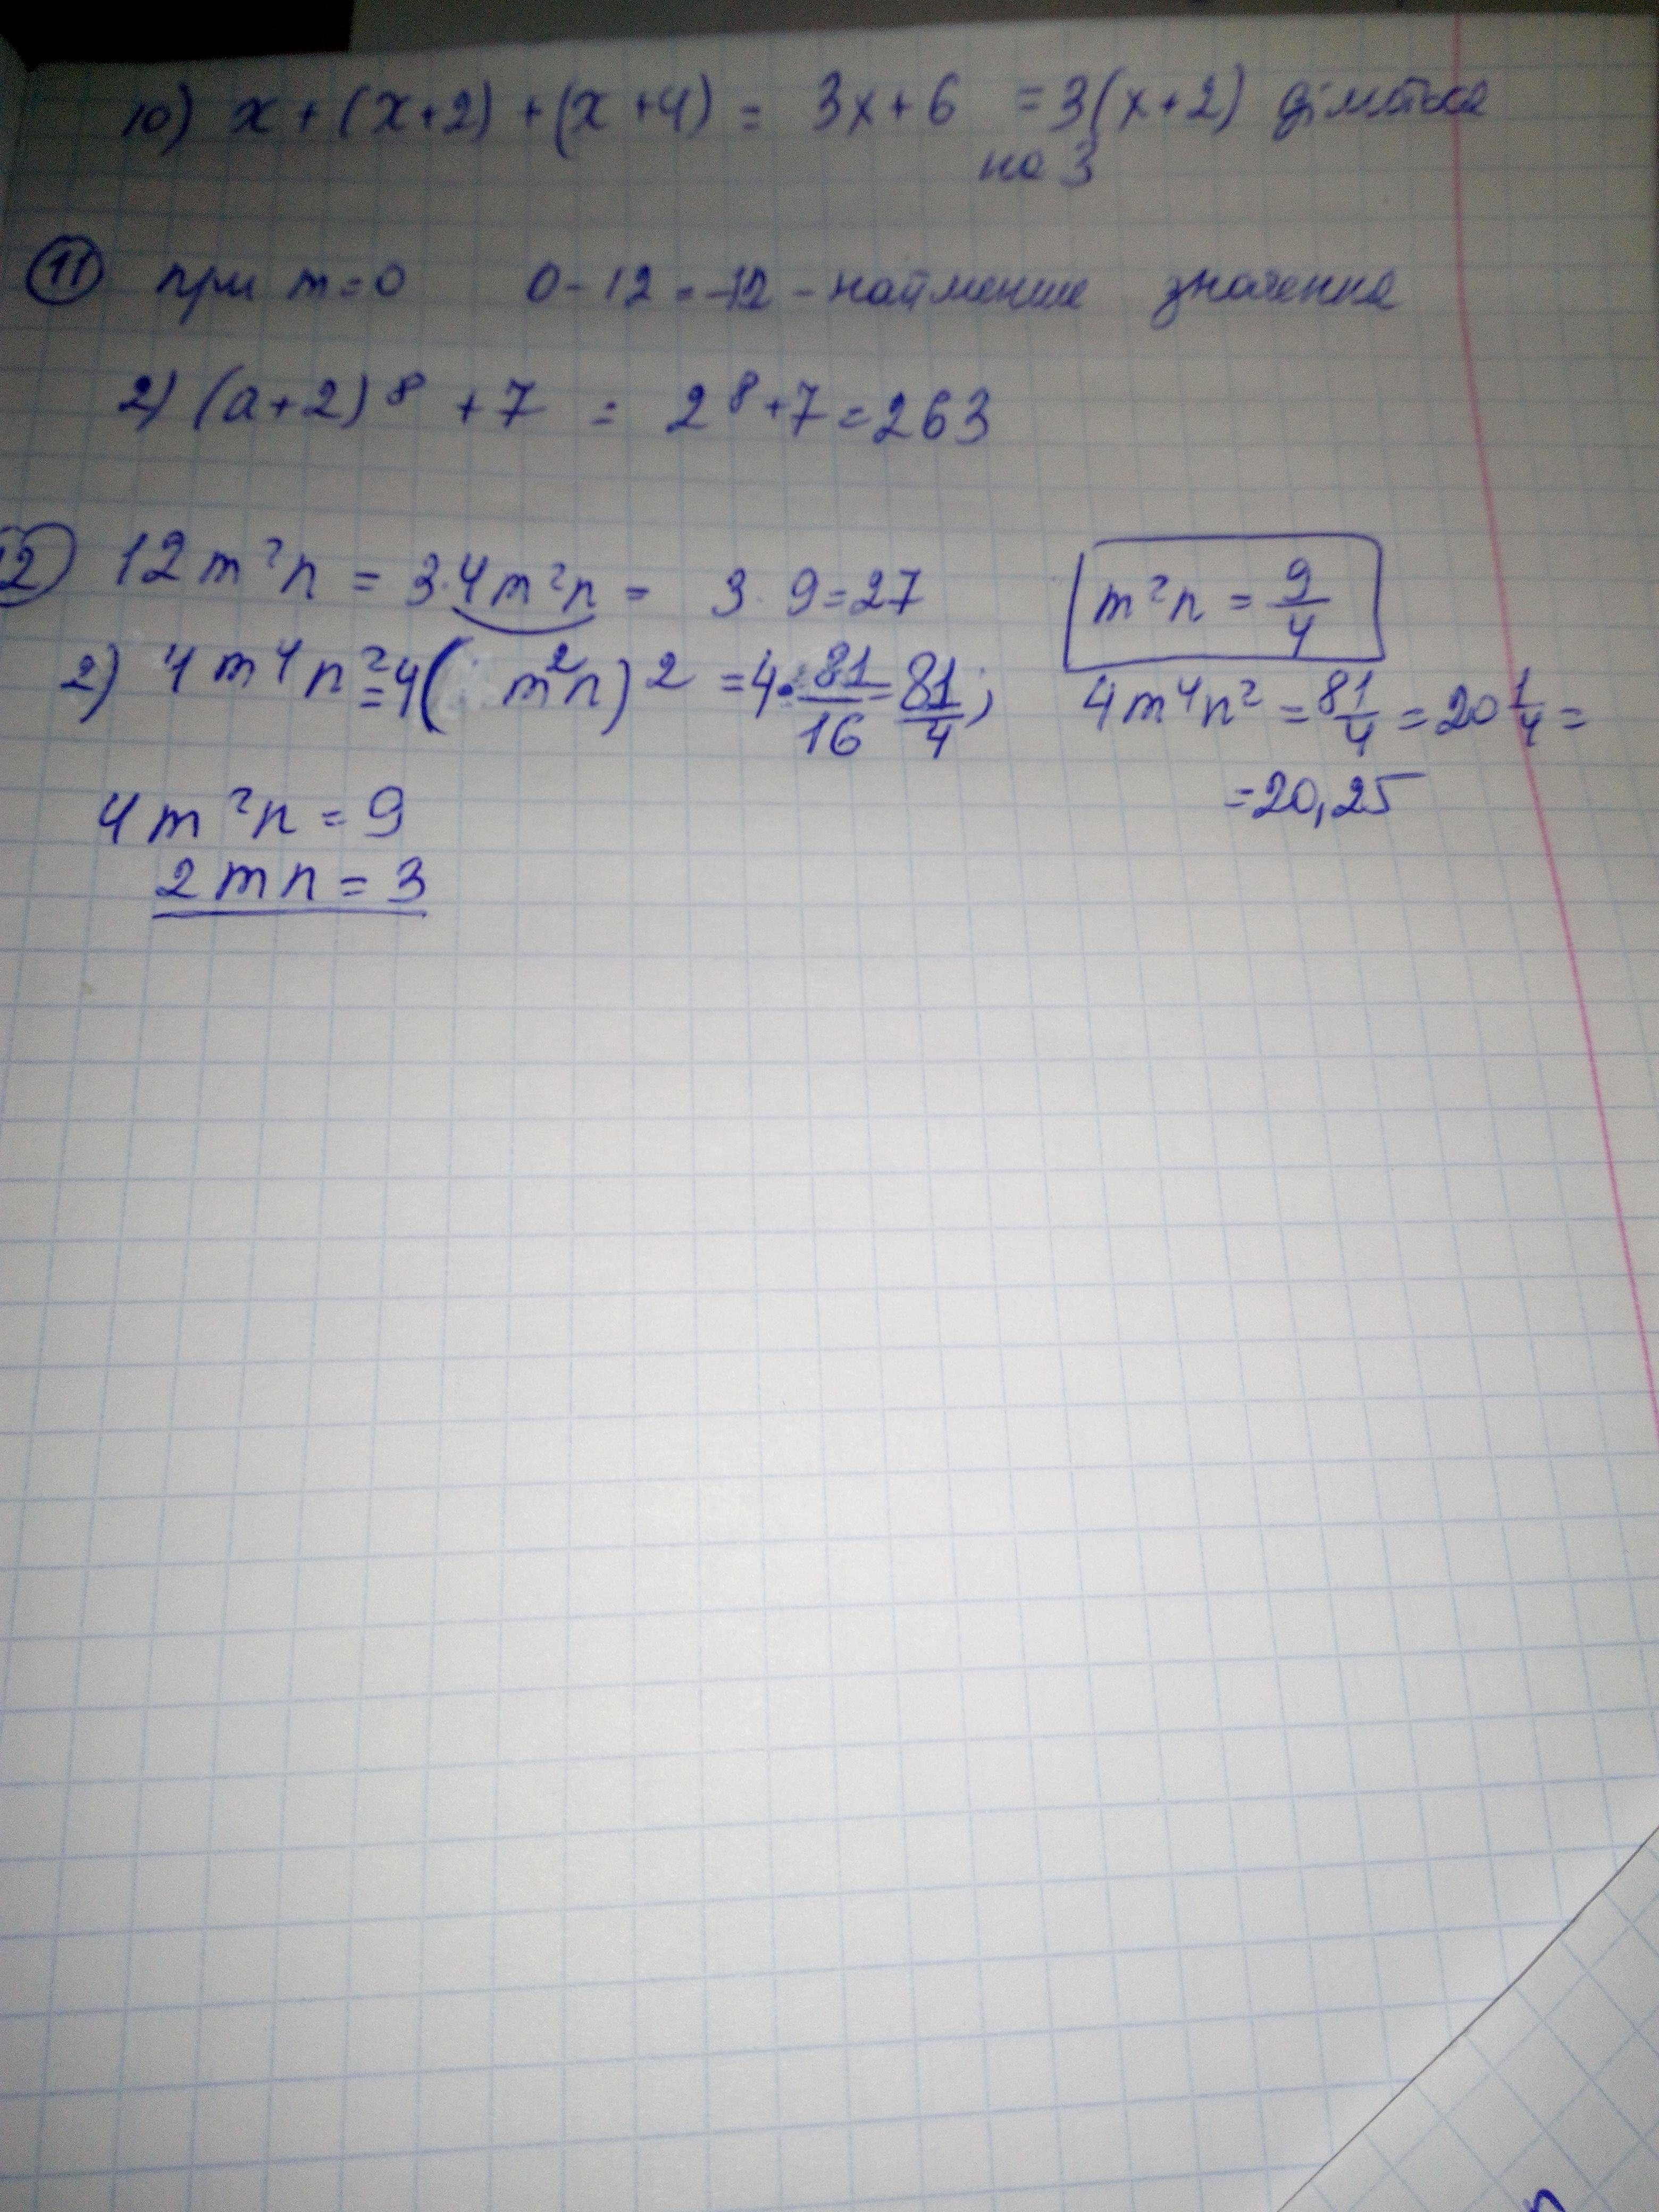 10) x + (x+2) + (x+4) = 3x + 6 = 3(x+2) ділиться
на 3
11 при m=0 0-12=-12 - найменше значення
2) (a+2)⁸ + 7 = 2⁸+7=263
12) 12m²n = 3·4m²n = 3·9=27 m²n = 9/4
2) 4m⁴n² = 4(m²n)² = 4·81/16 = 81/4; 4m⁴n² = 81/4 = 20 1/4 =
= 20,25
4m²n = 9
2mn = 3